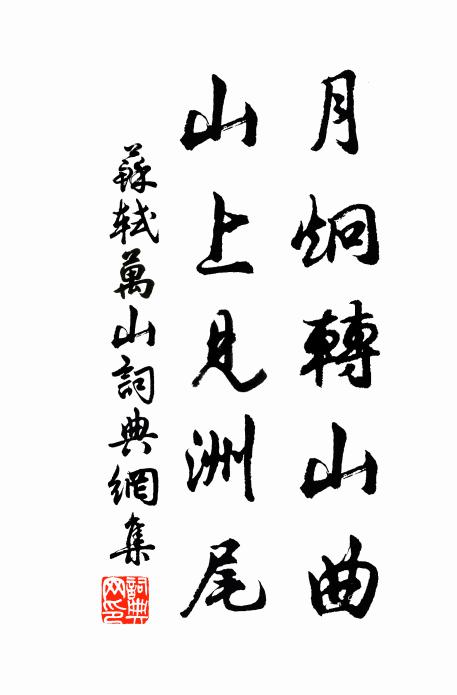 月炯轉山曲
山上見洲尾
蘇軾萬山詞典網集
詞典网印